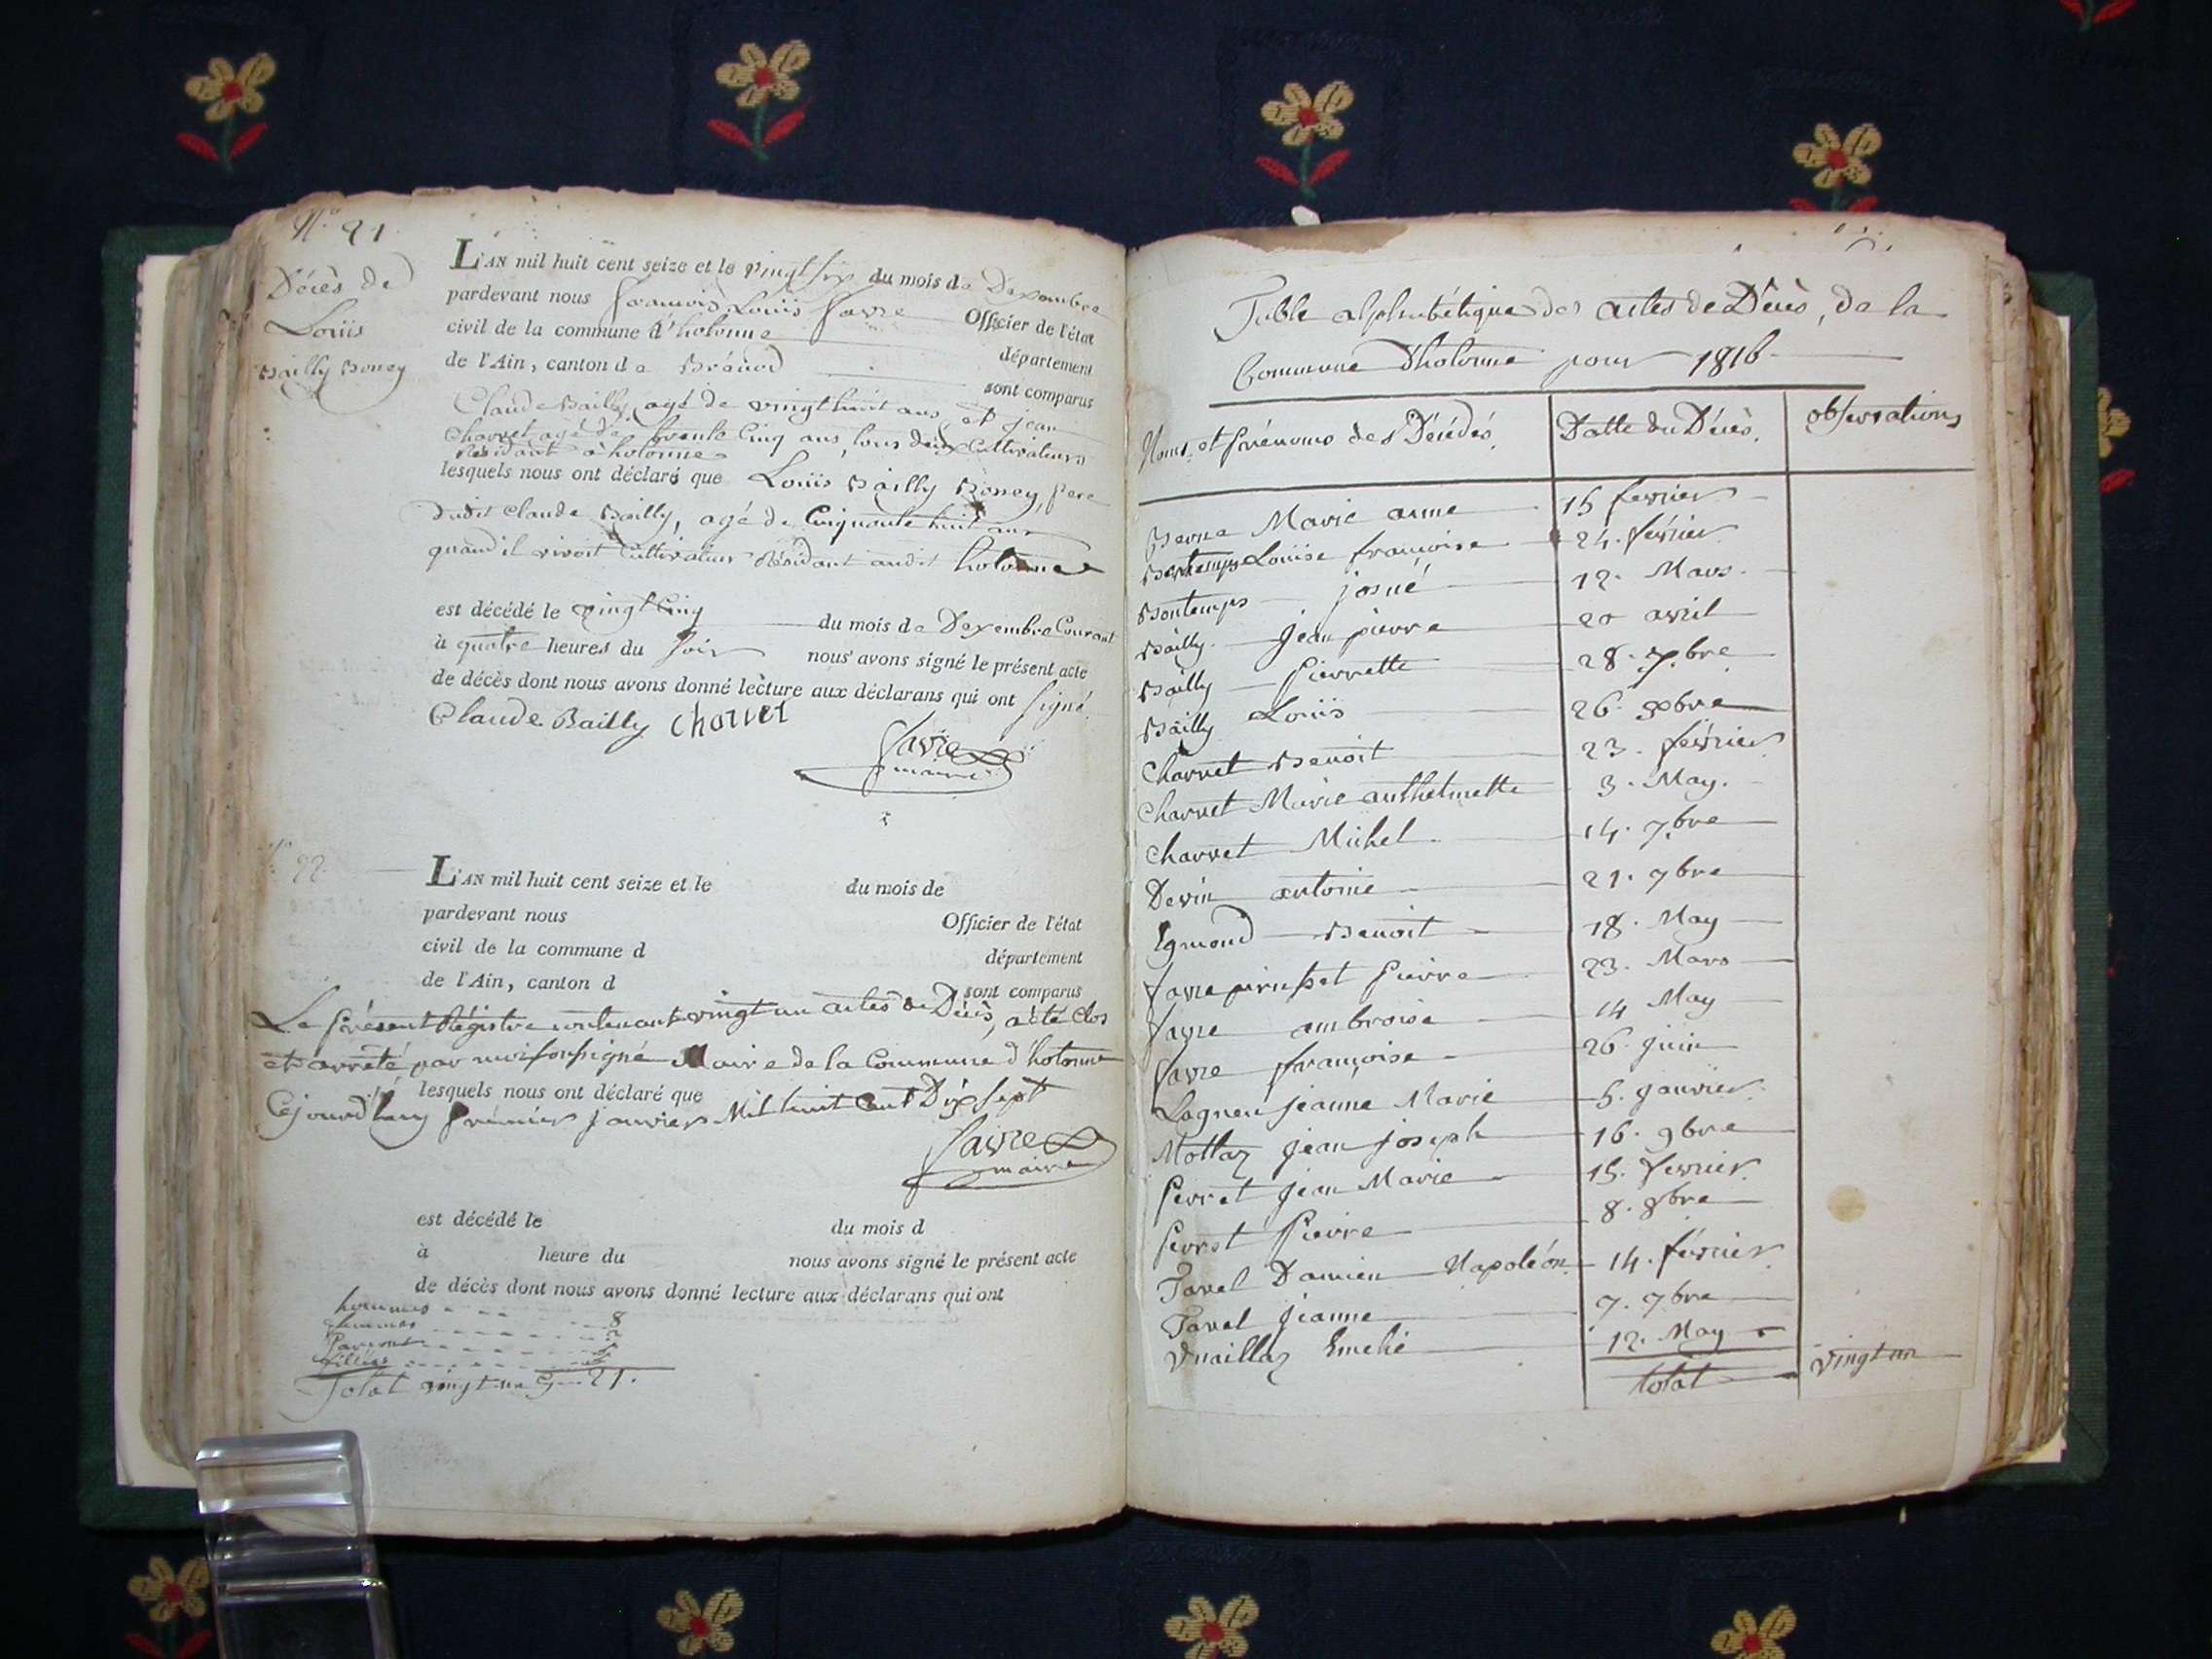 N.° 21.
Décès de
Louïs
Bailly Boney
L'AN mil huit cent seize et le vingt six du mois de Dexembre
pardevant nous francois Louïs favre Officier de l'état
civil de la commune d'holonne département
de l'Ain, canton de Brénod sont comparus
Claude Bailly agé de vingt huit ans, et jean
Charvet agé de trente Cinq ans, tous deux Cultivateurs
Résidant a holonne
lesquels nous ont déclaré que Louïs Bailly Boney, pere
dudit Claude Bailly, agé de Cinquante huit ans
quand il vivoit Cultivateur Résidant audit holonne
est décédé le vingt Cinq du mois de Dexembre Courant
à quatre heures du soir nous avons signé le présent acte
de décès dont nous avons donné lecture aux déclarans qui ont signé
Claude Bailly Charvet
favre
maire
N.° 22.
L'AN mil huit cent seize et le du mois de
pardevant nous Officier de l'état
civil de la commune d département
de l'Ain, canton d sont comparus
Le présent Régistre contenant vingt un actes de Décès, a été Clos
et arrêté par moi soussigné Maire de la Commune d'holonne
lesquels nous ont déclaré que
Cejourd'huy premier janvier Mil huit Cent Dix sept
favre
maire
est décédé le du mois d
à heure du nous avons signé le présent acte
de décès dont nous avons donné lecture aux déclarans qui ont
hommes 8
femmes
Garcons
filles
Total vingt un Cy 21.
Table alphabétique des actes de Décès, de la
Commune d'holonne pour 1816
Noms et prénoms des Décédés. Datte du Décès. observations
Berne Marie anne 15 fevrier
Bontemps Louïse françoise 24. février
Bontemps josué 12. Mars.
Bailly jean pierre 20 avril
Bailly Pierrette 28. 7.bre
Bailly Louïs 26. xbre
Charvet Benoit 23. février
Charvet Marie anthelmette 3. May.
Charvet Michel 14. 7.bre
Devin antoine 21. 7bre
Egmond Benoit 18. May
favre Pierre 23. Mars
favre ambroise 14 May
favre françoise 26. juin
Lagneu jeanne Marie 5. janvier.
Mottaz jean joseph 16. 9bre
Perret jean Marie 15. fevrier.
Perret Pierre 8. 8bre
Tavel Damien Napoléon 14. février
Tavel jeanne 7. 7bre
Vuaillaz Emelie 12. May
total vingt un